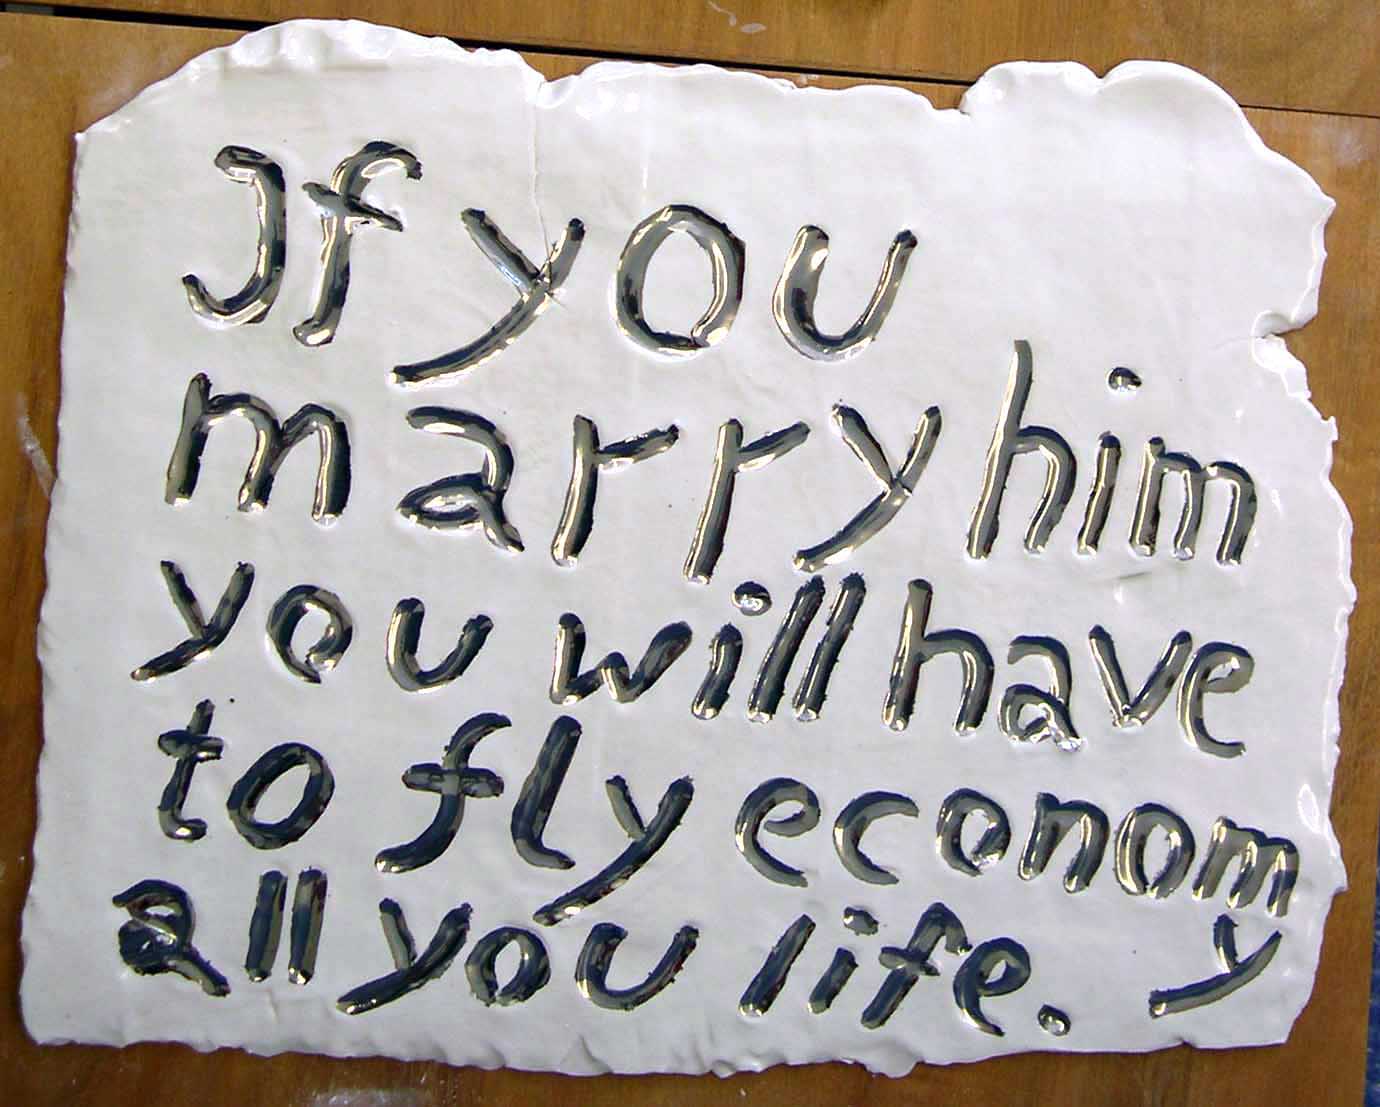 If you
marry him
you will have
to fly economy
all you life.